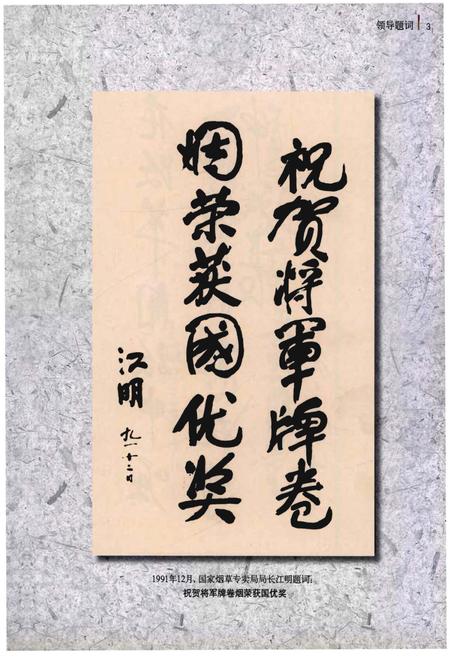 领导题词 3
祝贺将軍牌卷
烟荣获國优奖
江明
九一·十二日
1991年12月,国家烟草专卖局局长江明题词:
祝贺将军牌卷烟荣获国优奖